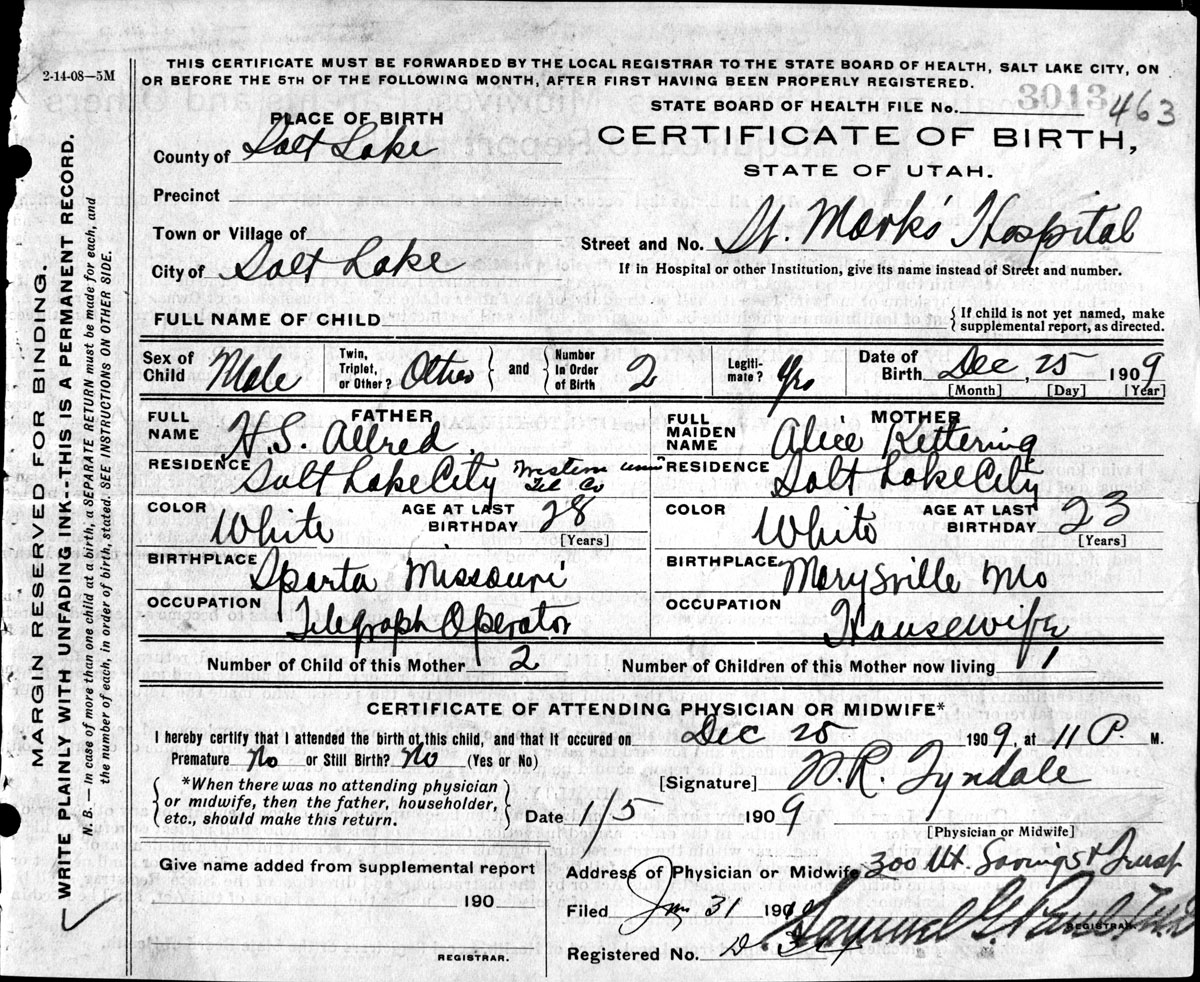 2-14-08—5M
THIS CERTIFICATE MUST BE FORWARDED BY THE LOCAL REGISTRAR TO THE STATE BOARD OF HEALTH, SALT LAKE CITY, ON
OR BEFORE THE 5TH OF THE FOLLOWING MONTH, AFTER FIRST HAVING BEEN PROPERLY REGISTERED.
STATE BOARD OF HEALTH FILE No. 3013 463
PLACE OF BIRTH
CERTIFICATE OF BIRTH,
STATE OF UTAH.
County of Salt Lake
Precinct
Town or Village of
Street and No. St. Mark's Hospital
City of Salt Lake
If in Hospital or other Institution, give its name instead of Street and number.
FULL NAME OF CHILD
{ If child is not yet named, make
supplemental report, as directed.
Sex of Child Male
Twin, Triplet, or Other? Other } and { Number In Order of Birth 2
Legitimate? Yes
Date of Birth Dec, 25 1909
[Month] [Day] [Year]
FATHER
FULL NAME H.S. Allred
RESIDENCE Salt Lake City Western Union Tel Co
COLOR White AGE AT LAST BIRTHDAY 28
[Years]
BIRTHPLACE Sparta Missouri
OCCUPATION Telegraph Operator
MOTHER
FULL MAIDEN NAME Alice Kettering
RESIDENCE Salt Lake City
COLOR White AGE AT LAST BIRTHDAY 23
[Years]
BIRTHPLACE Marysville Mo
OCCUPATION Housewife
Number of Child of this Mother 2 Number of Children of this Mother now living 1
CERTIFICATE OF ATTENDING PHYSICIAN OR MIDWIFE*
I hereby certify that I attended the birth of this child, and that it occured on Dec 25 1909, at 11 P. M.
Premature No or Still Birth? No (Yes or No)
[Signature] W.R. Tyndale
{ *When there was no attending physician
or midwife, then the father, householder,
etc., should make this return. }
Date 1/5 1909
[Physician or Midwife]
Give name added from supplemental report
190
REGISTRAR.
Address of Physician or Midwife 300 Ut. Savings & Trust
Filed Jan 31 1910 Samuel G. REGISTRAR.
Registered No.
MARGIN RESERVED FOR BINDING.
WRITE PLAINLY WITH UNFADING INK--THIS IS A PERMANENT RECORD.
N. B. — In case of more than one child at a birth, a SEPARATE RETURN must be made for each, and
the number of each, in order of birth, stated. SEE INSTRUCTIONS ON OTHER SIDE.